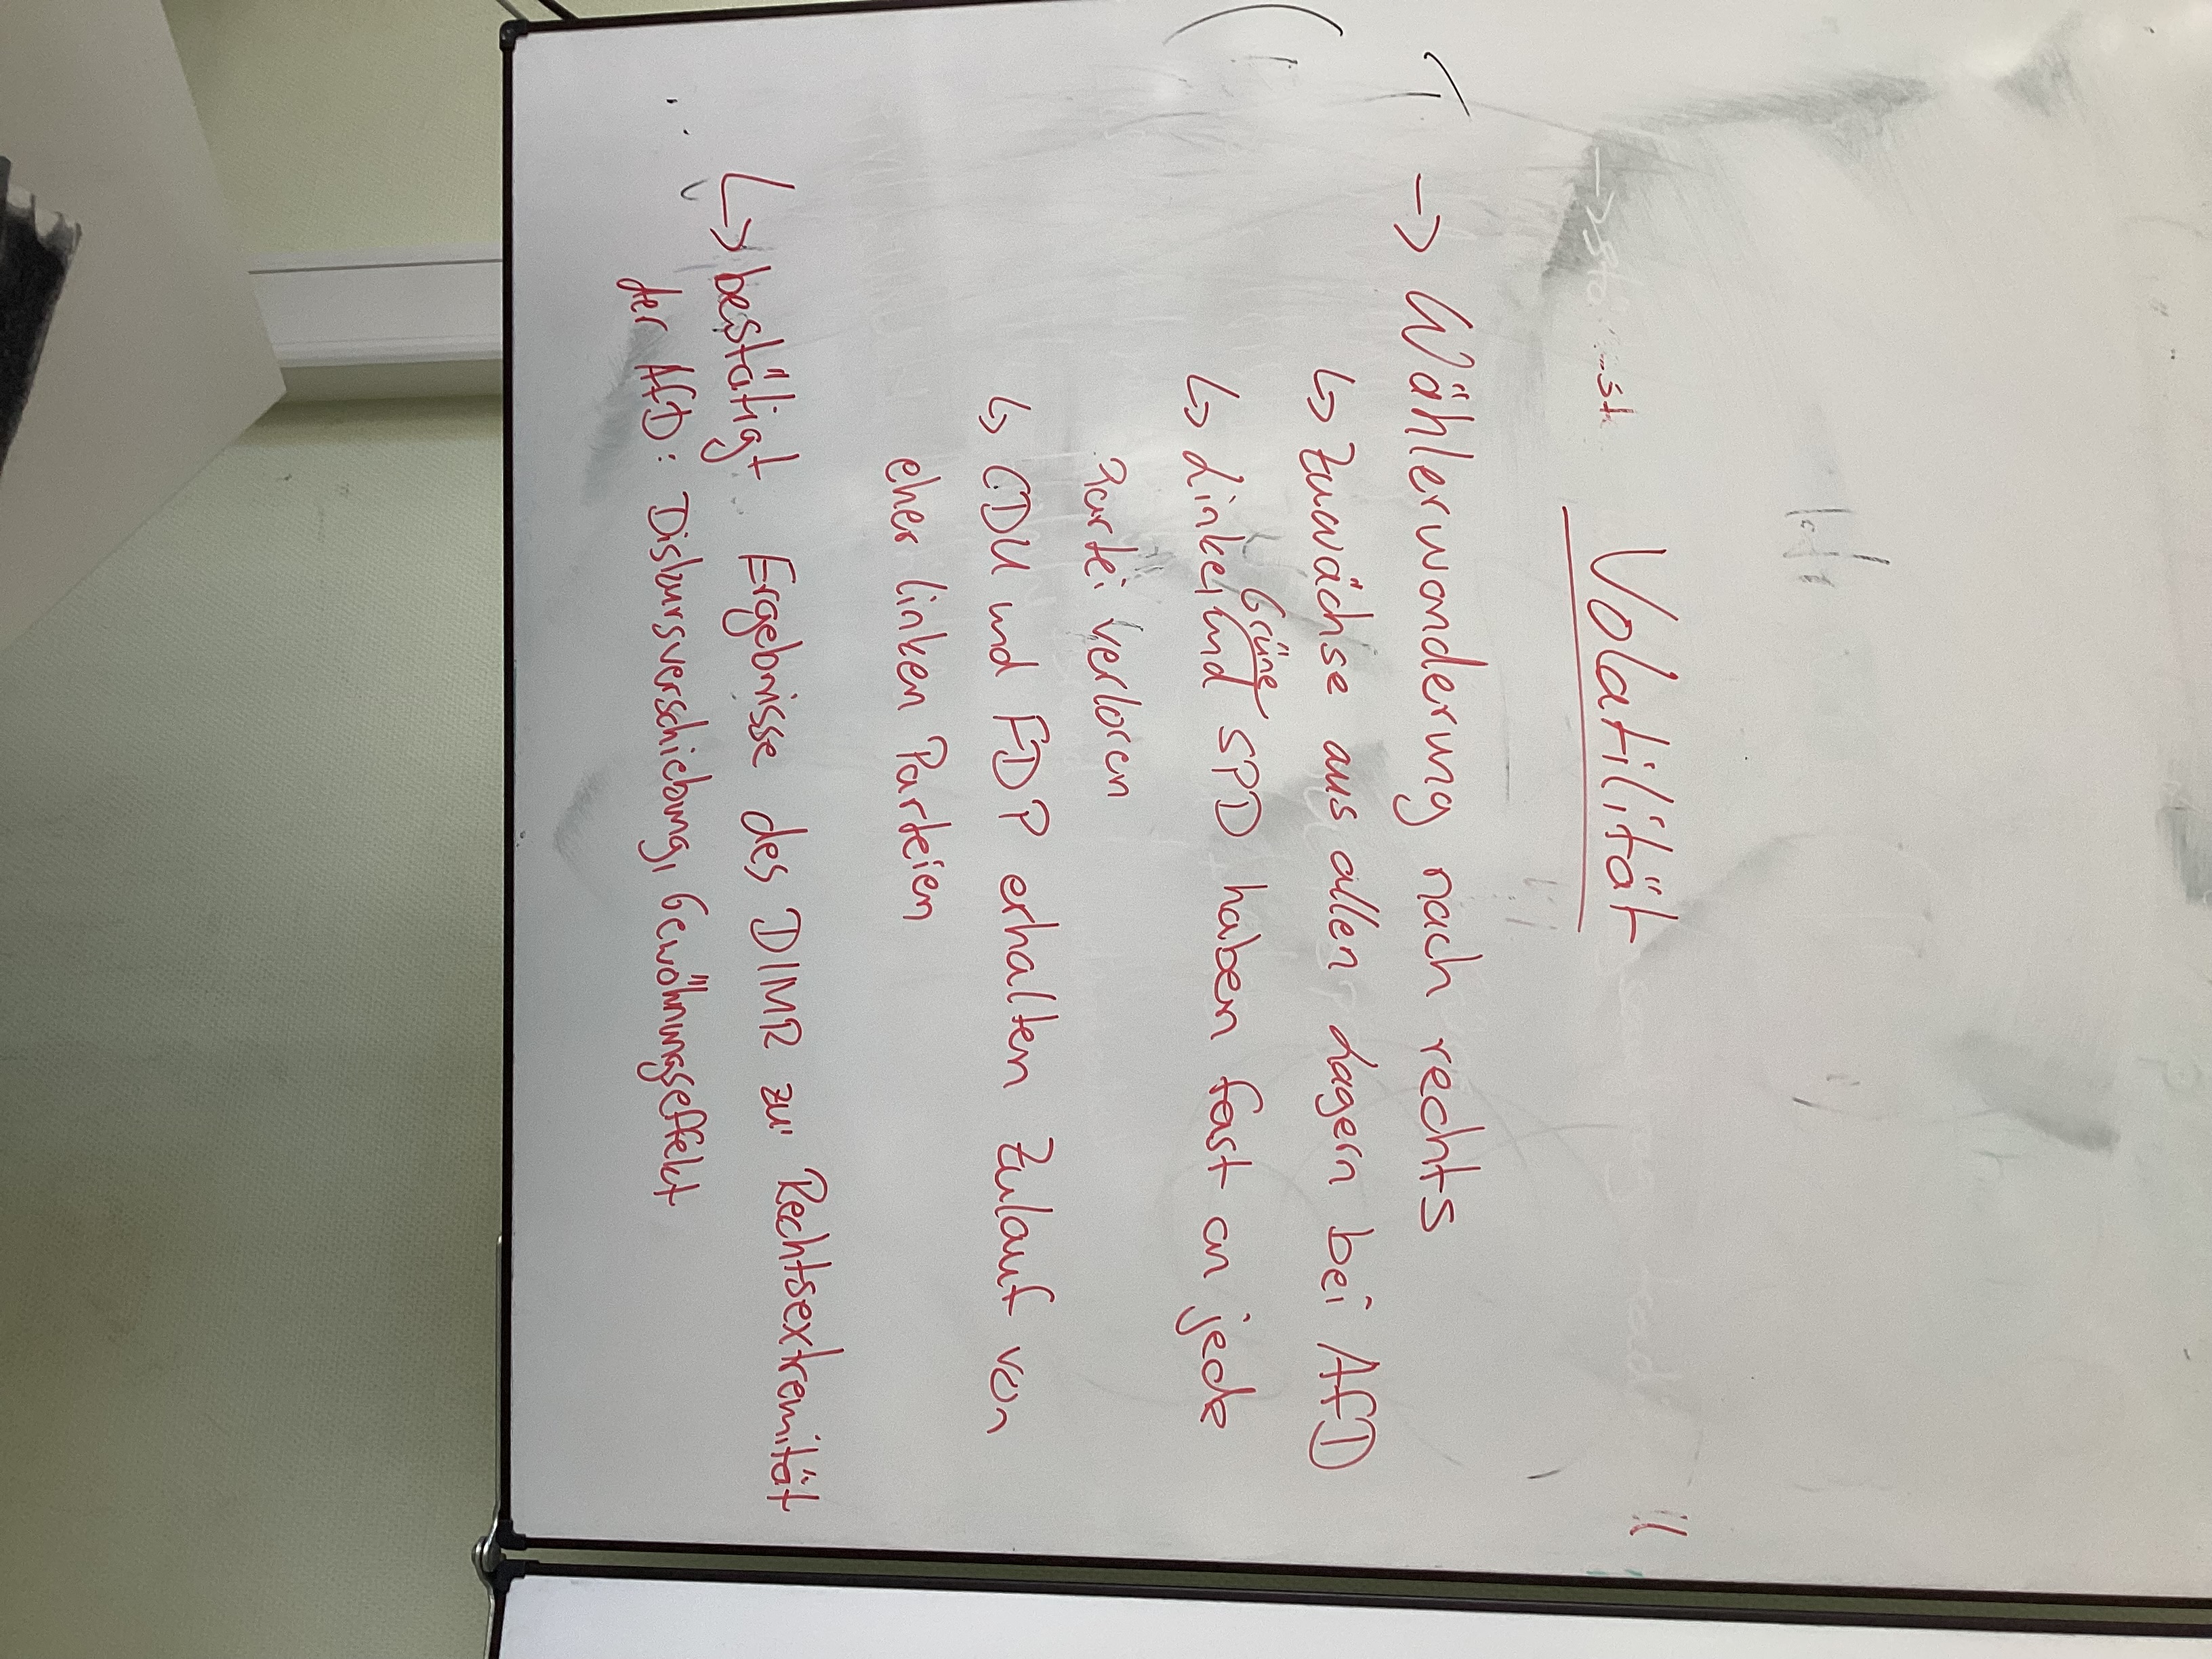 Volatilität
-> Wählerwanderung nach rechts
↳ Zuwächse aus allen Lagern bei AfD
Grüne
↳ Linke, und SPD haben fast an jede
Partei verloren
↳ CDU und FDP erhalten Zulauf von
eher linken Parteien
↳ bestätigt Ergebnisse des DIMR zur Rechtsextremität
der AfD: Diskursverschiebung, Gewöhnungseffekt